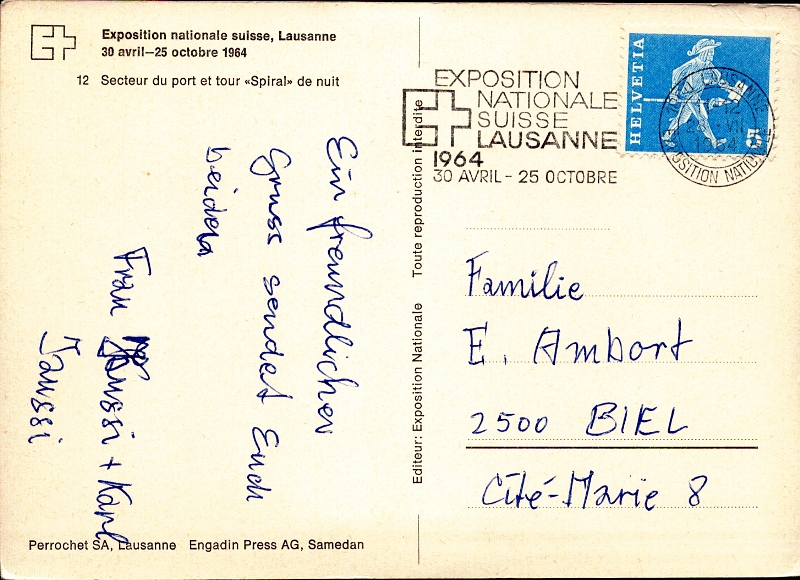 Exposition nationale suisse, Lausanne
30 avril–25 octobre 1964
12 Secteur du port et tour «Spiral» de nuit
EXPOSITION
NATIONALE
SUISSE
LAUSANNE
1964
30 AVRIL - 25 OCTOBRE
HELVETIA
5
LAUSANNE
12
VII
1964
EXPOSITION NATIONALE
Ein freundlicher
Gruss sendet Euch
beiden
Frau
+ Karl
Jaussi
Editeur: Exposition Nationale Toute reproduction interdite
Familie
E. Ambort
2500 BIEL
Cité-Marie 8
Perrochet SA, Lausanne Engadin Press AG, Samedan